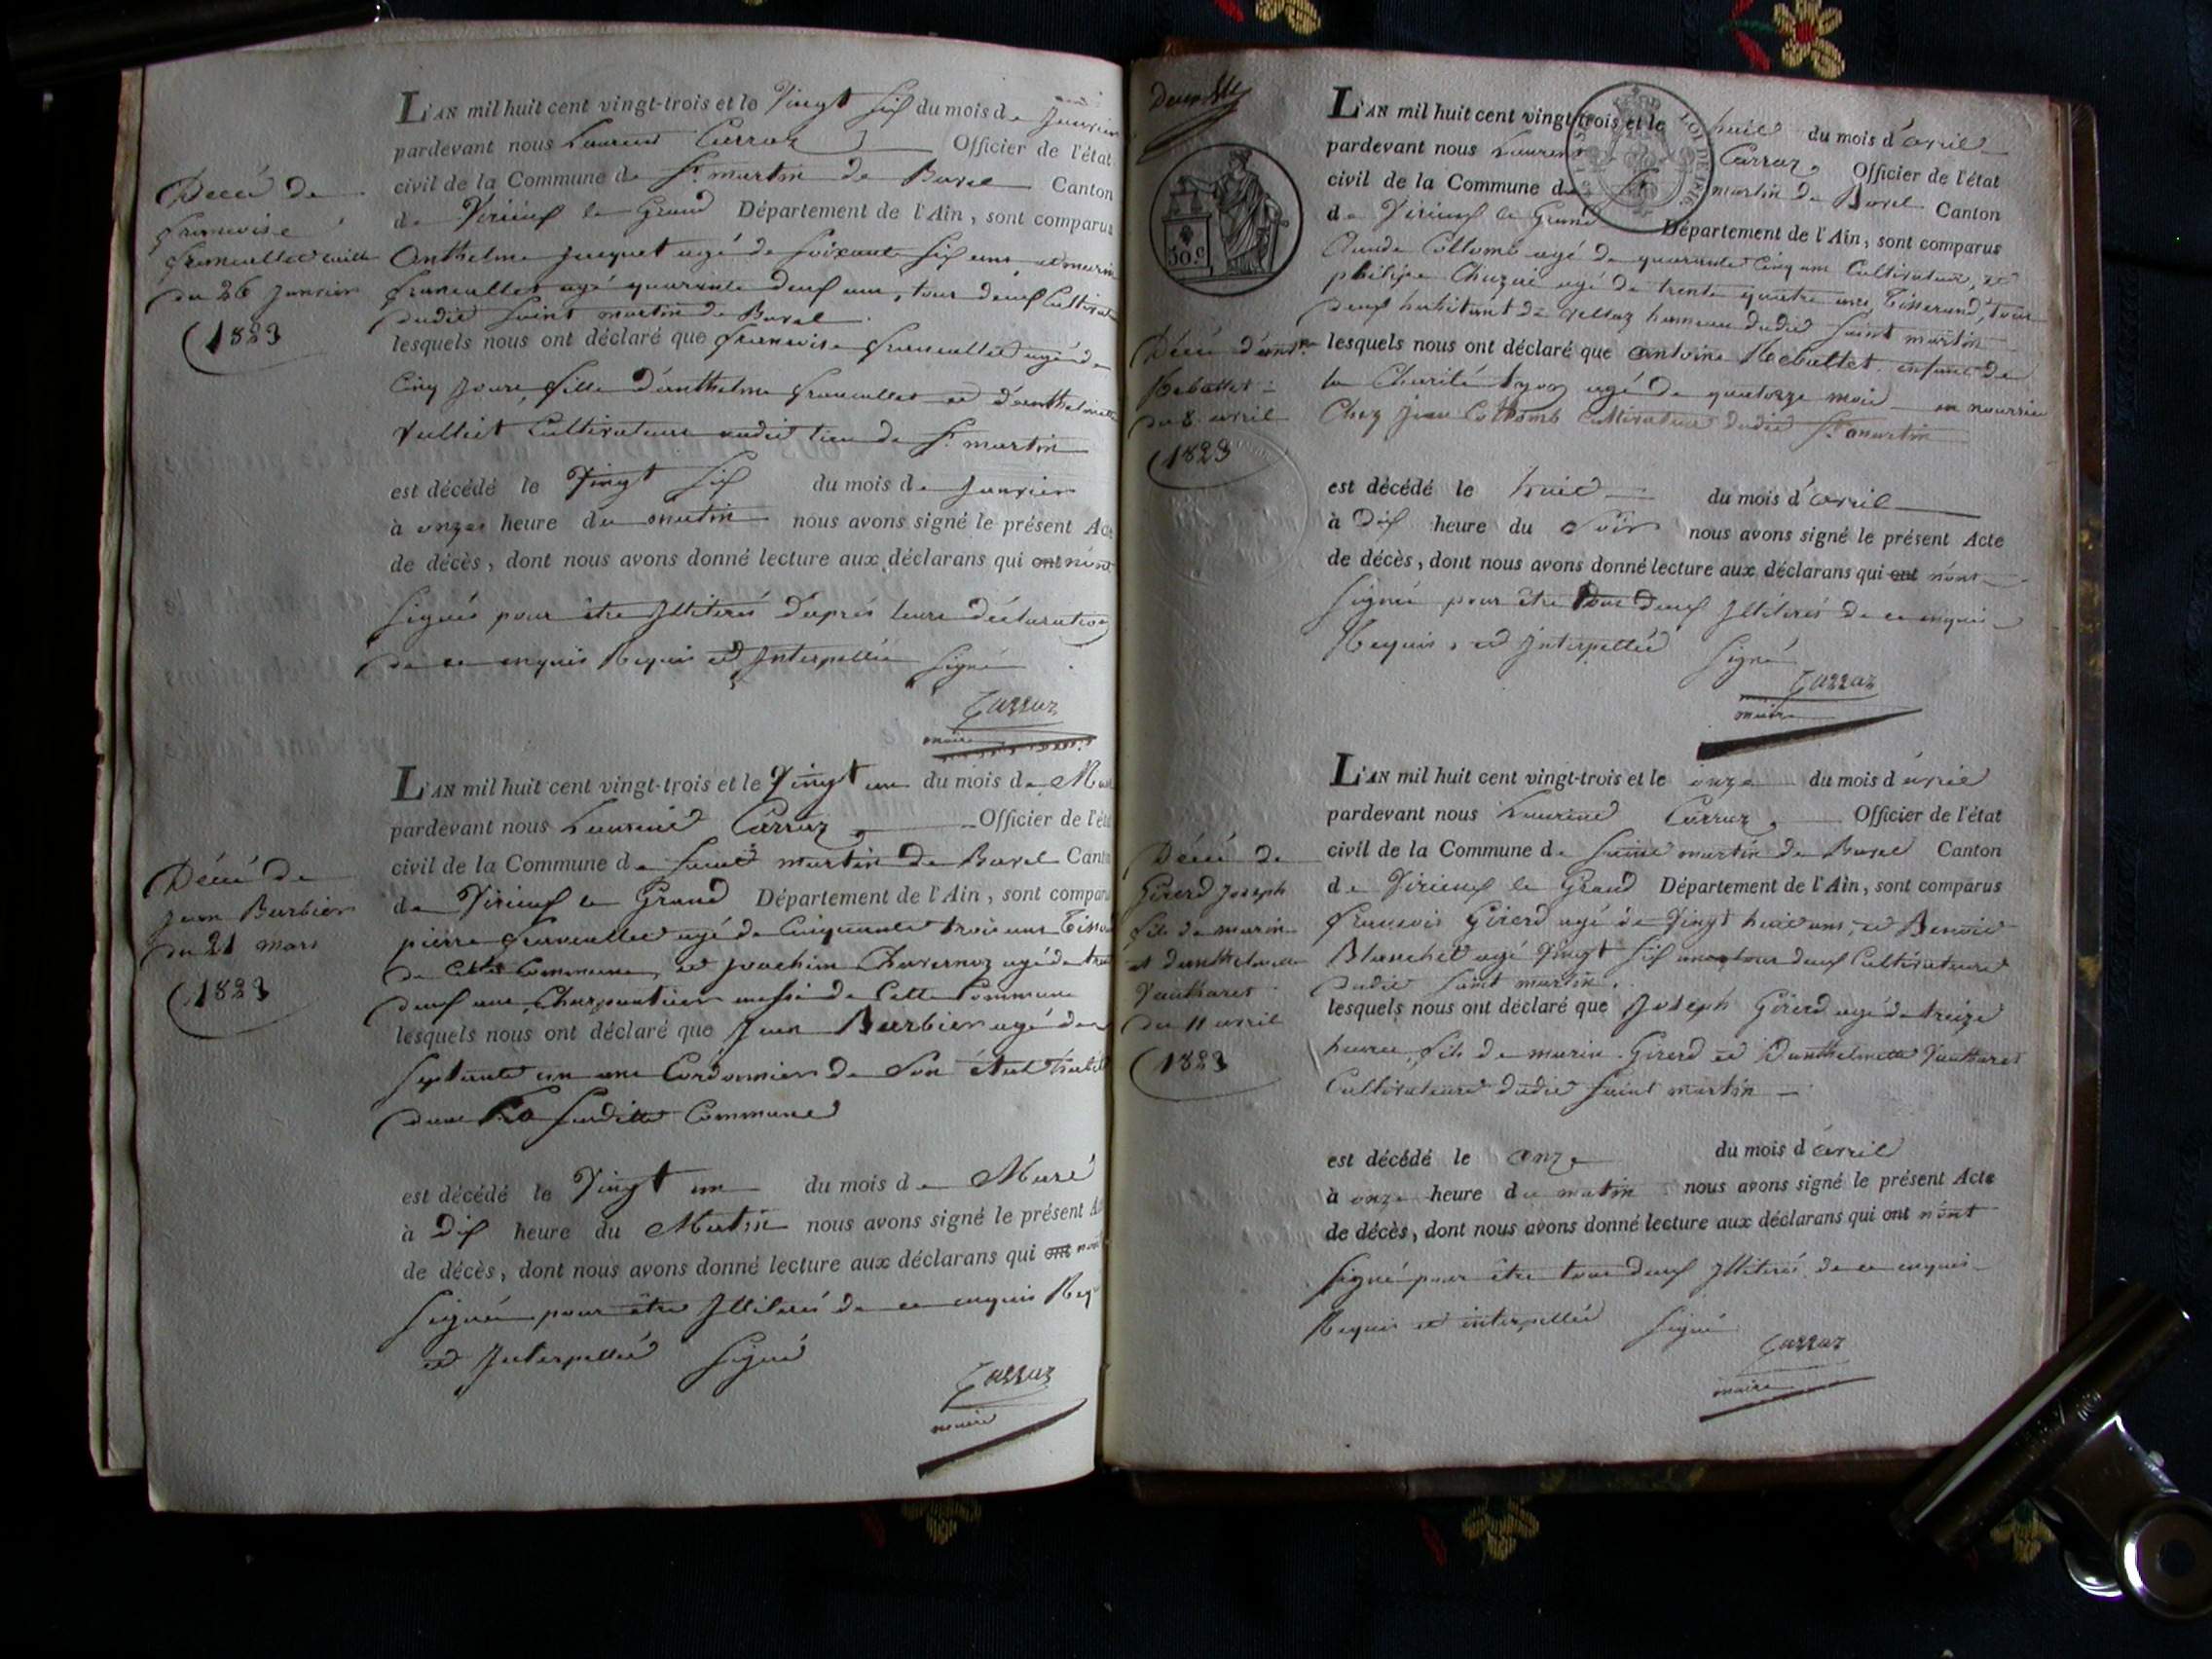 L'AN mil huit cent vingt-trois et le Vingt Six du mois de Janvier
pardevant nous Laurent Carraz Officier de l'état
civil de la Commune de St martin de Bavel Canton
de Virieux le Grand Département de l'Ain, sont comparus
Anthelme Jacquet agé de Soixante Six ans, et marin
agé quarante deux ans, tous deux Cultivat
dudit Saint martin de Bavel
lesquels nous ont déclaré que francoise agé de
Cinq Jours, fille d'anthelme et d'anthelmette
Cultivateurs audit lieu de St martin
est décédé le Vingt Six du mois de Janvier
à onze heure du matin nous avons signé le présent Acte
de décès, dont nous avons donné lecture aux déclarans qui ont n'ont
Signés pour être Illiterés D'après leurs déclaration
de ce enquis Requis et Interpellés Signé
Carraz
maire
Décé de
francoise
du 26 Janvier
1823
L'AN mil huit cent vingt-trois et le Vingt un du mois de Mars
pardevant nous Laurend Carraz Officier de l'éta
civil de la Commune de Saint martin de Bavel Canton
de Virieux le Grand Département de l'Ain, sont comparus
pierre agé de Cinquante trois ans Tisser
de Cette Commune, et Joachim Chavernoz agé de
deux ans, Charpentier aussi de Cette Commune
lesquels nous ont déclaré que Jean Barbier agé de
Septante un ans Cordonnier de Son état
dans la Susditte Commune
est décédé le Vingt un du mois de Mars
à Dix heure du Matin nous avons signé le présent Ac
de décès, dont nous avons donné lecture aux déclarans qui ont n'ont
Signés pour être Illiterés de ce enquis Req
et Interpellés Signé
Carraz
maire
Décé de
Jean Barbier
du 21 mars
1823
30 c
LOI DE 1816
L'AN mil huit cent vingt-trois et le huit du mois d'avril
pardevant nous Laurent Carraz Officier de l'état
civil de la Commune de St martin de Bavel Canton
de Virieux le Grand Département de l'Ain, sont comparus
Claude Collomb agé de quarante Cinq ans Cultivateur, et
philipe Chuzui agé de trente quatre ans, Tisserand, tous
deux habitant de hameau dudit Saint martin
lesquels nous ont déclaré que antoine Rebattet enfant de
la Charité Lyon agé de quatorze mois en nourrice
Chez Jean Collomb Cultivateur dudit St martin
est décédé le huit du mois d'avril
à Dix heure du Soir nous avons signé le présent Acte
de décès, dont nous avons donné lecture aux déclarans qui ont n'ont
Signés pour être tous deux Illiterés de ce enquis
Requis, et Interpellés Signé
Carraz
maire
Décé d'antne
Rebattet
du 8 avril
1823
L'AN mil huit cent vingt-trois et le onze du mois d'avril
pardevant nous Laurend Carraz Officier de l'état
civil de la Commune de Saint martin de Bavel Canton
de Virieux le Grand Département de l'Ain, sont comparus
francois Girerd agé de Vingt huit ans, et Benoit
Blanchet agé Vingt Six ans tous deux Cultivateurs
dudit Saint martin
lesquels nous ont déclaré que Joseph Girerd agé de treize
heures, fils de marin Girerd et D'anthelmette Vautharet
Cultivateurs dudit Saint martin
est décédé le onze du mois d'avril
à onze heure du matin nous avons signé le présent Acte
de décès, dont nous avons donné lecture aux déclarans qui ont n'ont
Signé pour être tous deux Illiterés de ce enquis
Requis et interpellés Signé
Carraz
maire
Décé de
Girerd Joseph
fils de marin
et d'anthelmette
Vautharet
du 11 avril
1823